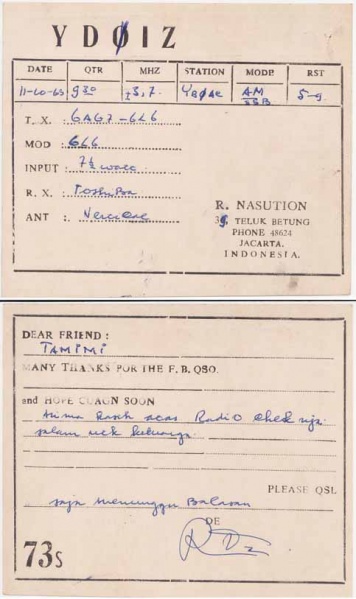 YDØIZ
DATE QTR MHZ STATION MODE RST
11-10-63 9³⁰ ±3,7. YBØAC AM SSB 5-9
T. X. : 6AG7-6L6
MOD : 6L6
INPUT : 7½ watt
R. X. : Toshiba
ANT :
R. NASUTION
39 TELUK BETUNG
PHONE 48624
JACARTA.
INDONESIA.
DEAR FRIEND :
TAMIMI
MANY THANKS FOR THE F. B. QSO.
and HOPE CUAGN SOON
Trima kasih atas Radio chek nja
salam utk keluarga
PLEASE QSL
saja menunggu Balasan
DE
73s